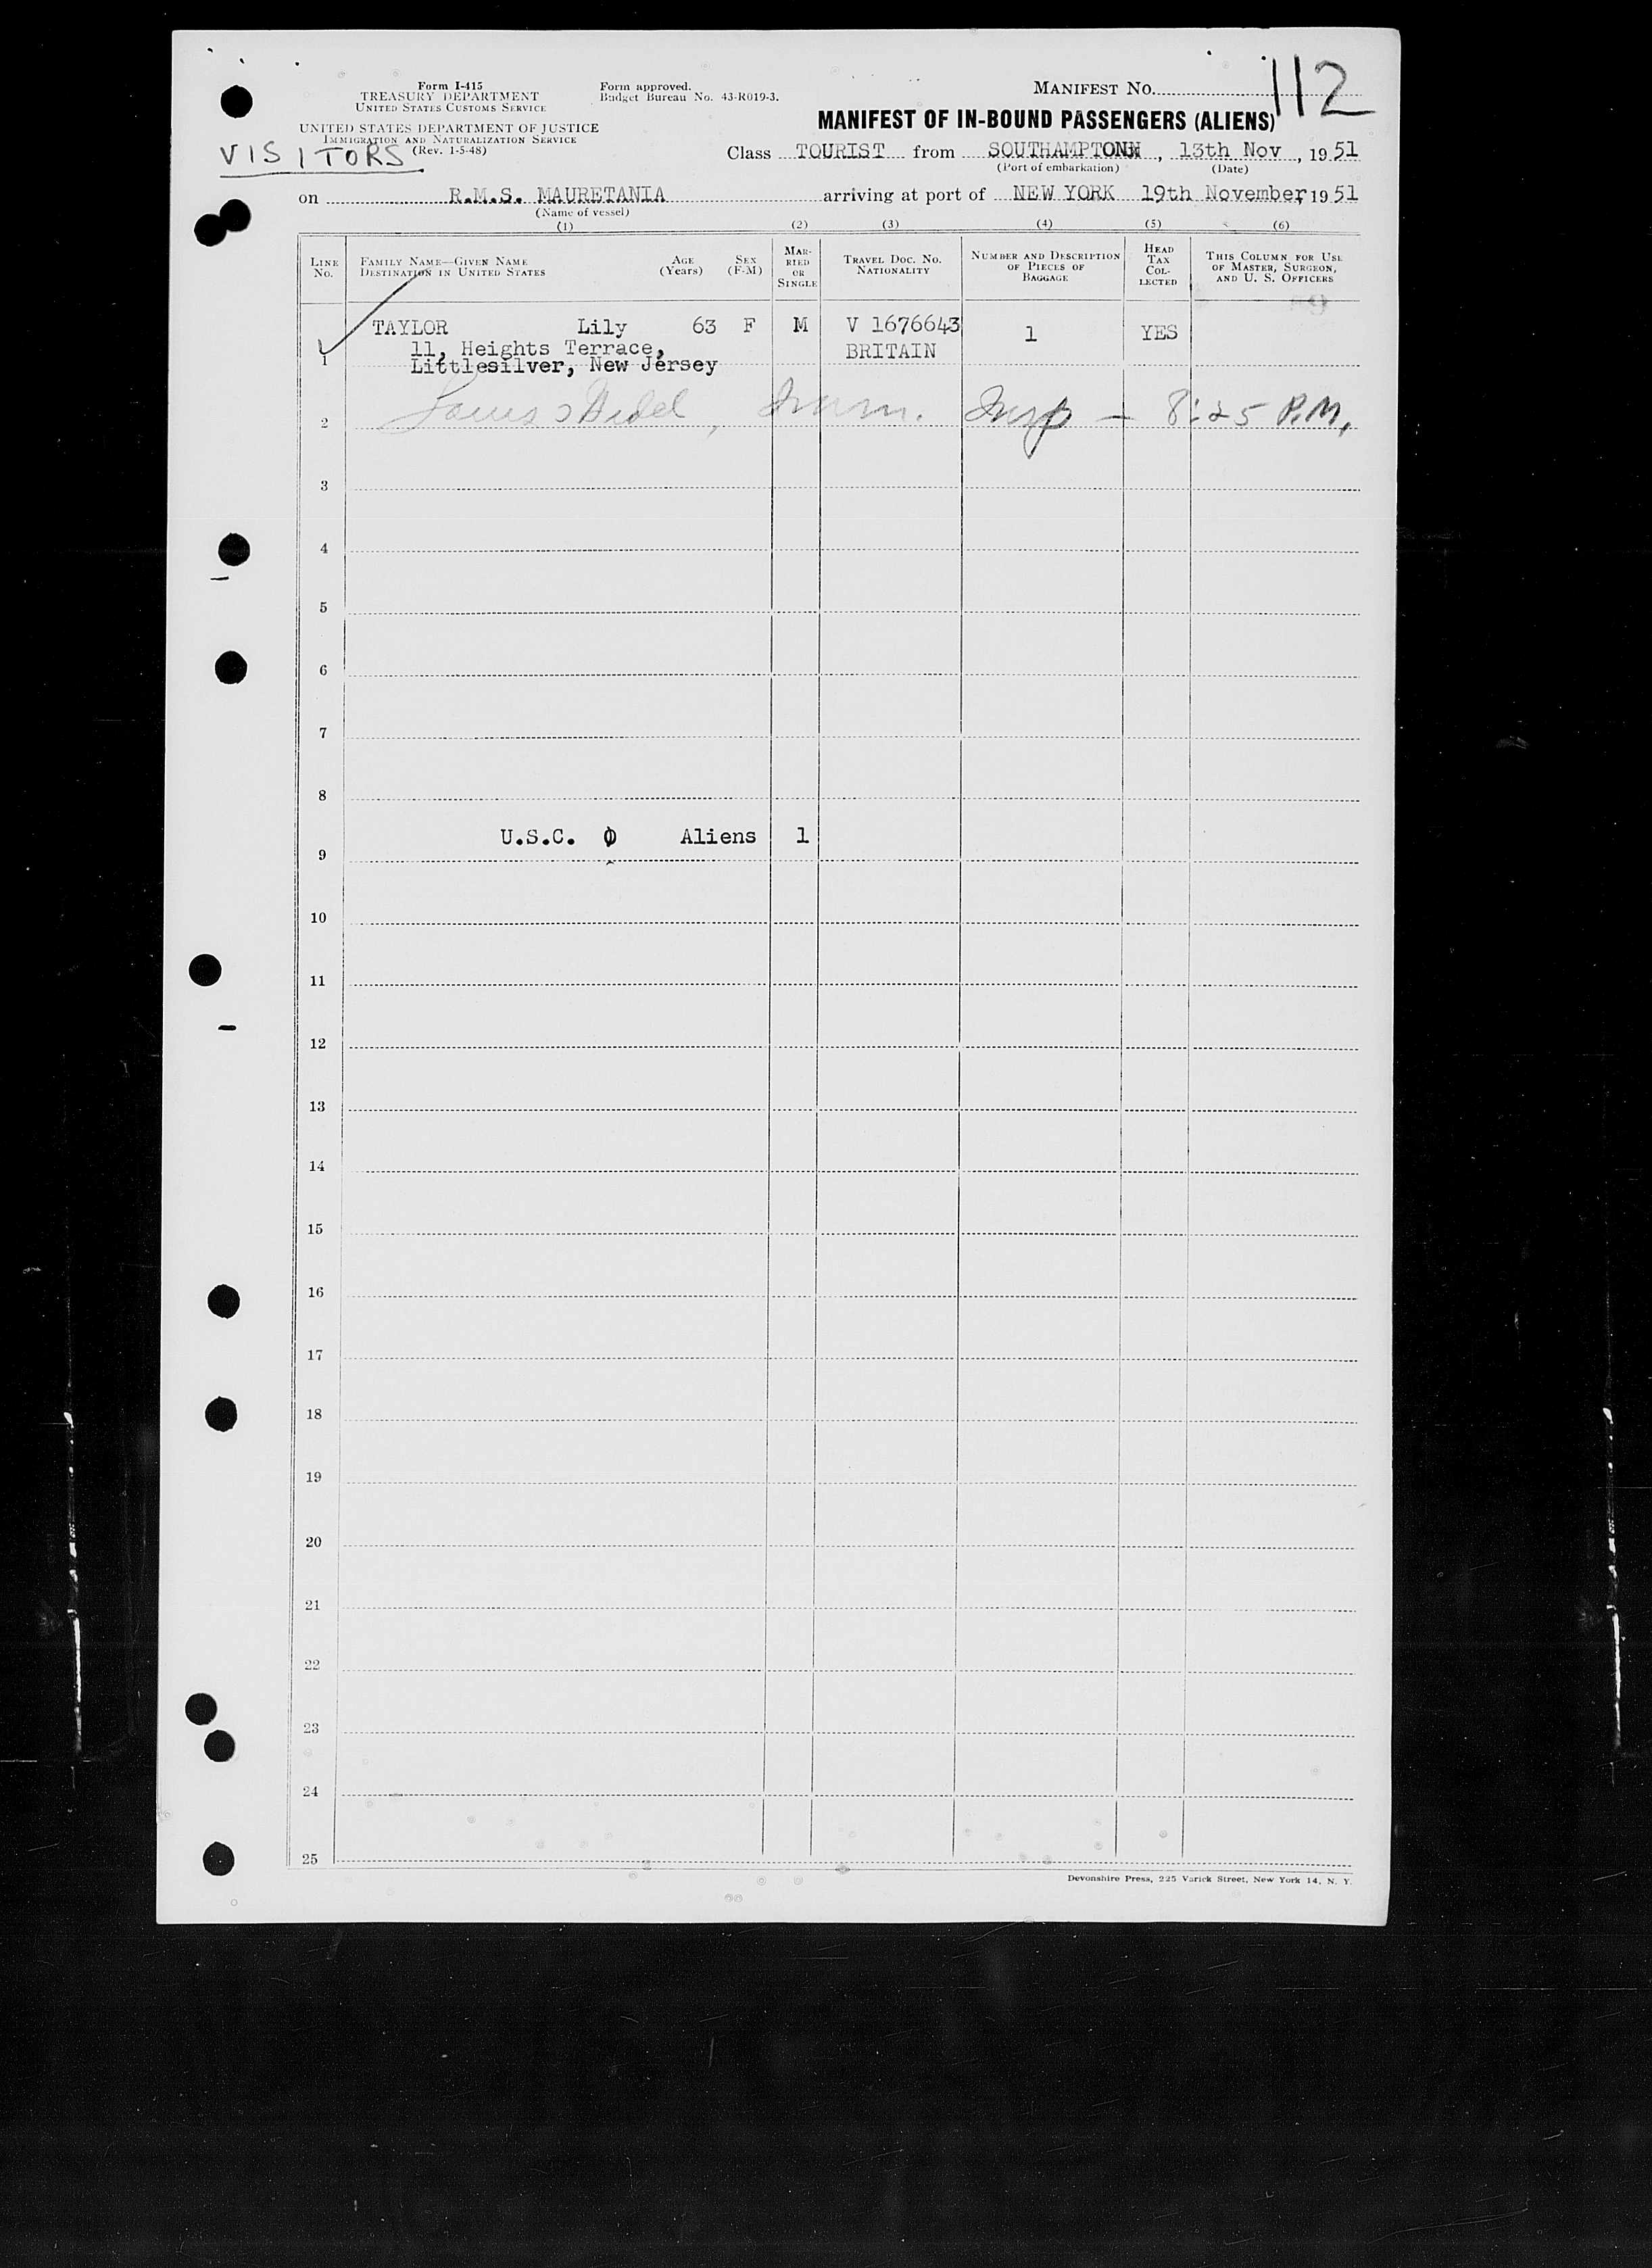 Form I-415
TREASURY DEPARTMENT
UNITED STATES CUSTOMS SERVICE
UNITED STATES DEPARTMENT OF JUSTICE
IMMIGRATION AND NATURALIZATION SERVICE
(Rev. 1-5-48)
VISITORS
Form approved.
Budget Bureau No. 43-R019-3.
MANIFEST NO. 112
MANIFEST OF IN-BOUND PASSENGERS (ALIENS)
Class TOURIST from SOUTHAMPTON, 13th Nov, 1951
(Port of embarkation) (Date)
on R.M.S. MAURETANIA arriving at port of NEW YORK 19th November, 1951
(Name of vessel)
(1) (2) (3) (4) (5) (6)
LINE NO.
FAMILY NAME—GIVEN NAME
DESTINATION IN UNITED STATES
AGE (Years)
SEX (F-M)
MARRIED OR SINGLE
TRAVEL DOC. NO.
NATIONALITY
NUMBER AND DESCRIPTION OF PIECES OF BAGGAGE
HEAD TAX COLLECTED
THIS COLUMN FOR USE OF MASTER, SURGEON, AND U. S. OFFICERS
TAYLOR Lily 63 F M V 1676643 1 YES
11, Heights Terrace, BRITAIN
1 Littlesilver, New Jersey
2 Imm. Insp — 8:25 P.M.
3
4
5
6
7
8
U.S.C. 0 Aliens 1
9
10
11
12
13
14
15
16
17
18
19
20
21
22
23
24
25
Devonshire Press, 225 Varick Street, New York 14, N. Y.